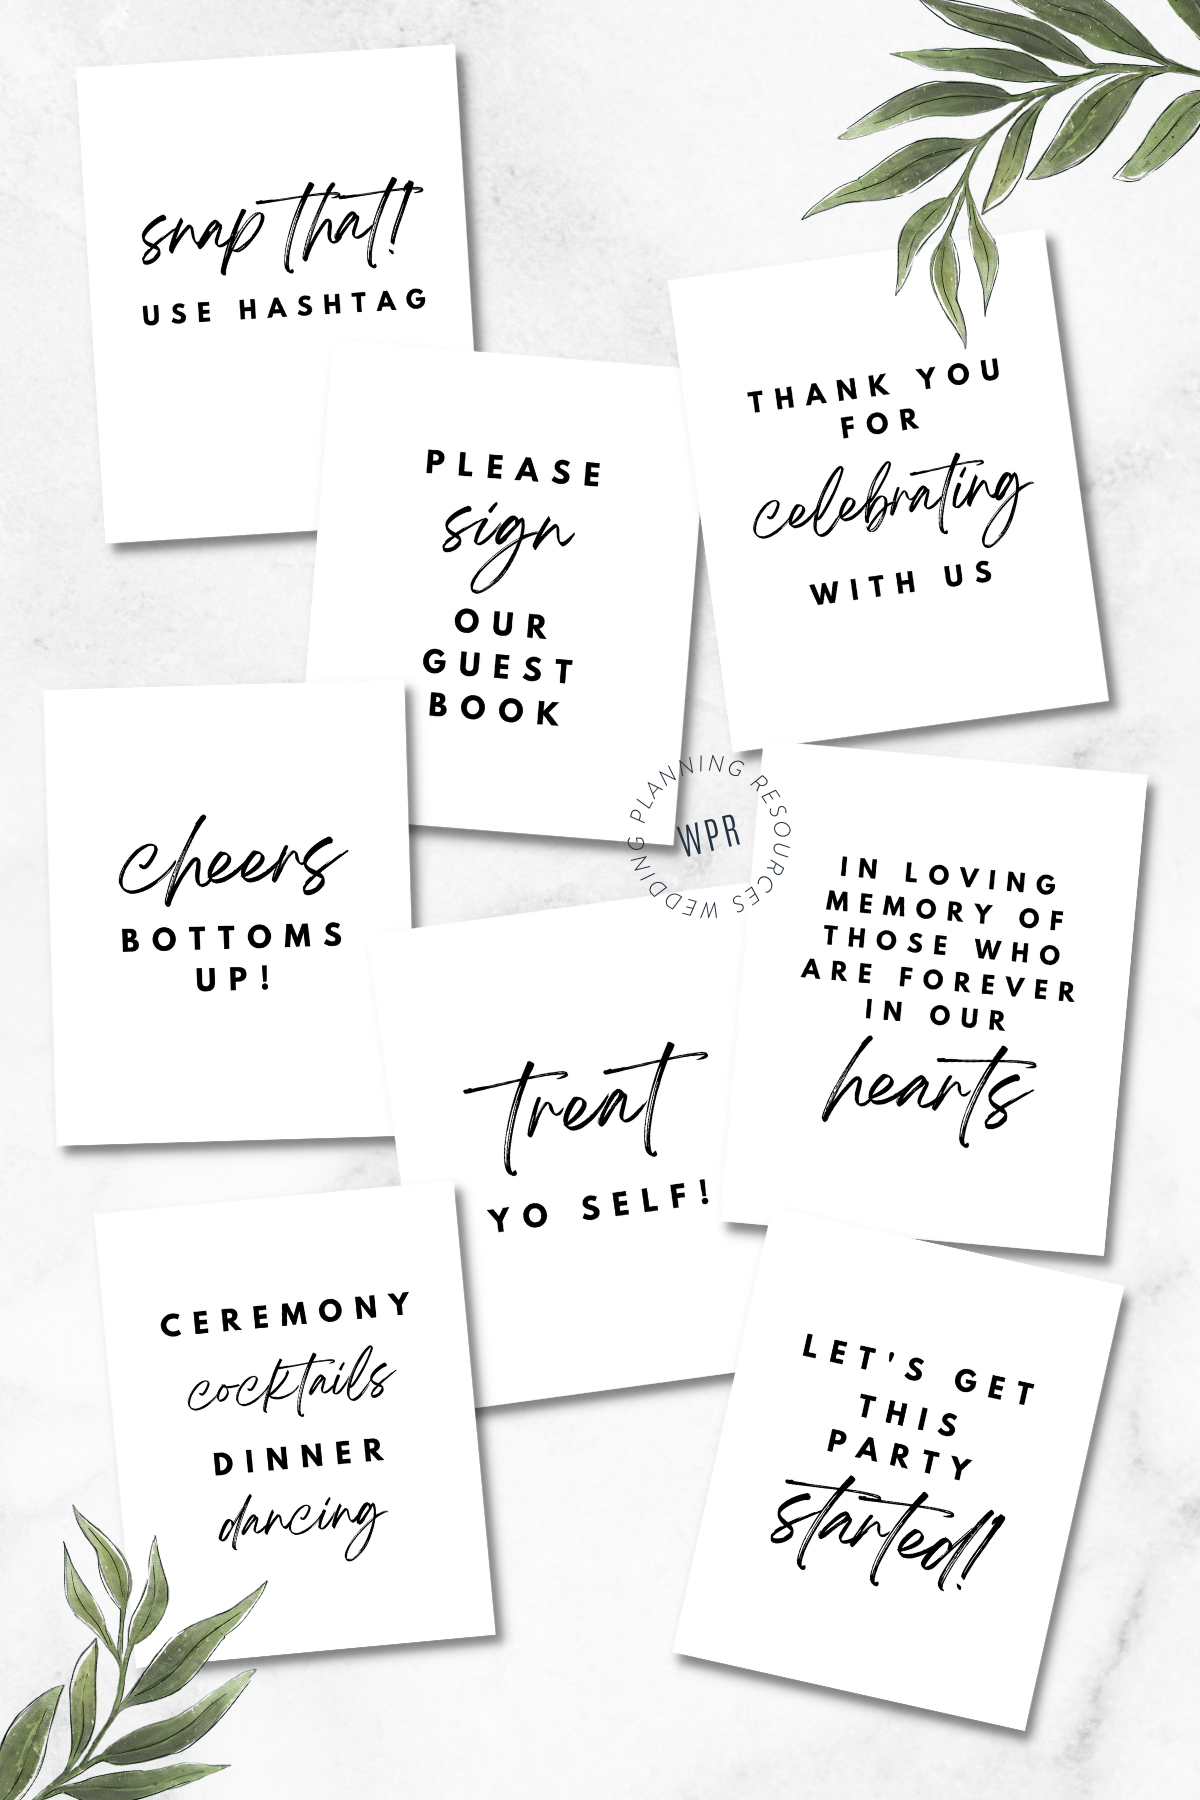 snap that!
USE HASHTAG
PLEASE
sign
OUR
GUEST
BOOK
THANK YOU
FOR
celebrating
WITH US
cheers
BOTTOMS
UP!
WEDDING PLANNING RESOURCES
WPR
IN LOVING
MEMORY OF
THOSE WHO
ARE FOREVER
IN OUR
hearts
treat
YO SELF!
CEREMONY
cocktails
DINNER
dancing
LET'S GET
THIS
PARTY
started!